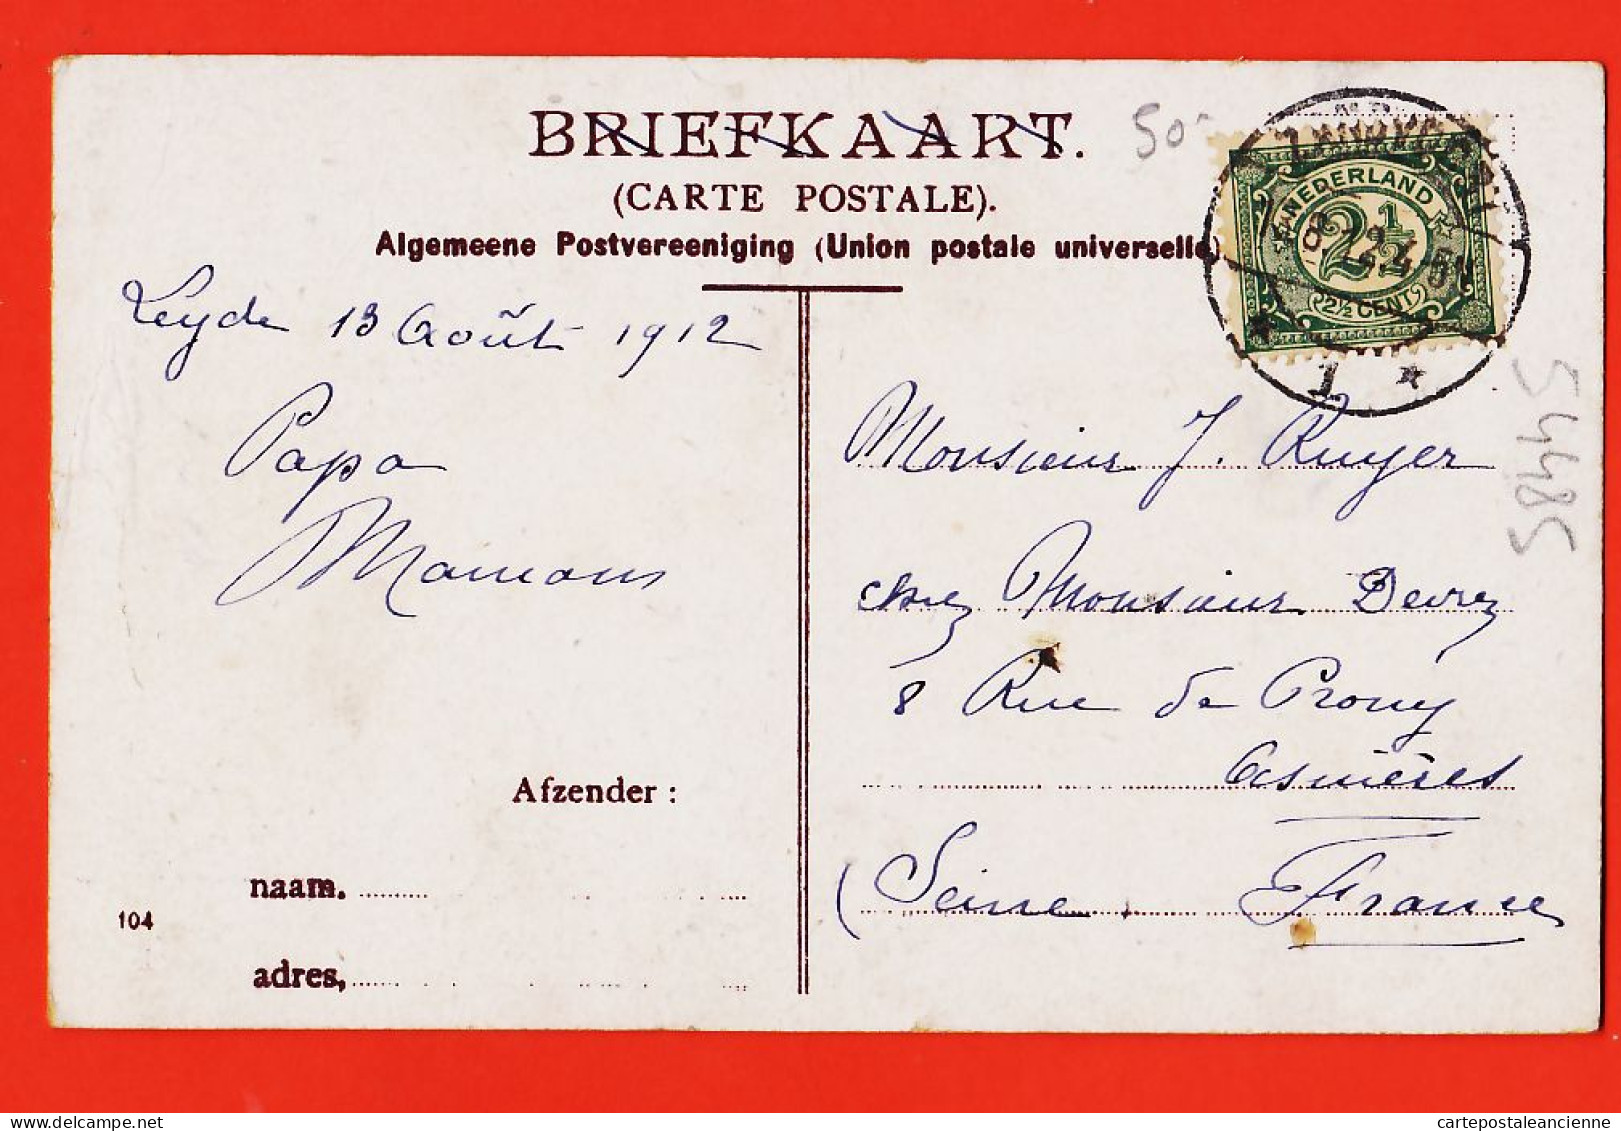 BRIEFKAART.
(CARTE POSTALE).
Algemeene Postvereeniging (Union postale universelle)
50
NEDERLAND
2½
2½ CENT
1
Leyde 13 Août 1912
Papa
Maman
Monsieur J. Ruyer
chez Monsieur Devrez
8 Rue de Prony
Asnières
(Seine. France
54485
Afzender :
naam.
104
adres,
cartepostaleancienne